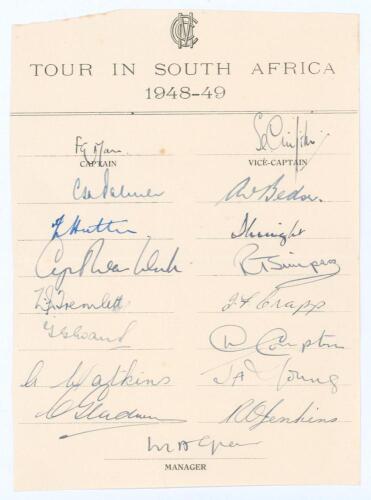 MCC
TOUR IN SOUTH AFRICA
1948-49
F G Mann S C Griffith
CAPTAIN VICE-CAPTAIN
C H Palmer A V Bedser.
L Hutton D Wright
Cyril Washbrook R T Simpson
M F Tremlett J F Crapp
D Compton
A Watkins J A Young
C Gladwin R O Jenkins
M B Green
MANAGER